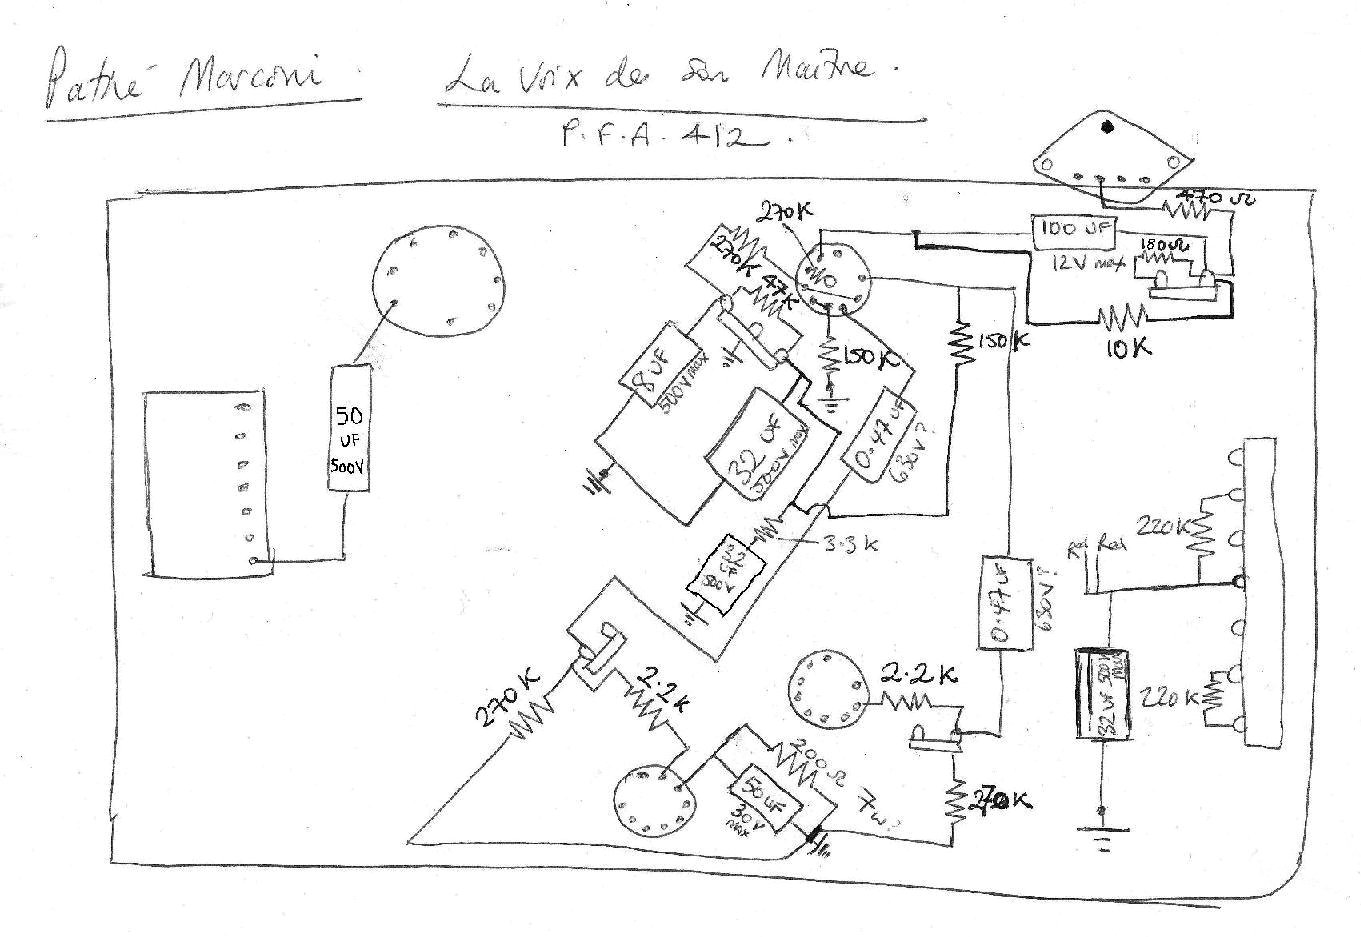 Pathé Marconi. La Voix de Son Maître.
P.F.A. 412.
270K
470Ω
100 UF
12V max
180Ω
270K
47K
150K
10K
150K
8 UF
500V max
32 UF
500V max
0.47 UF
630V?
3.3K
50
UF
500V
500V
0.47 UF
630V?
Red Red
220K
220K
32 UF 500V
270K
2.2K
2.2K
200Ω
7w?
50 UF
30V
max
270K